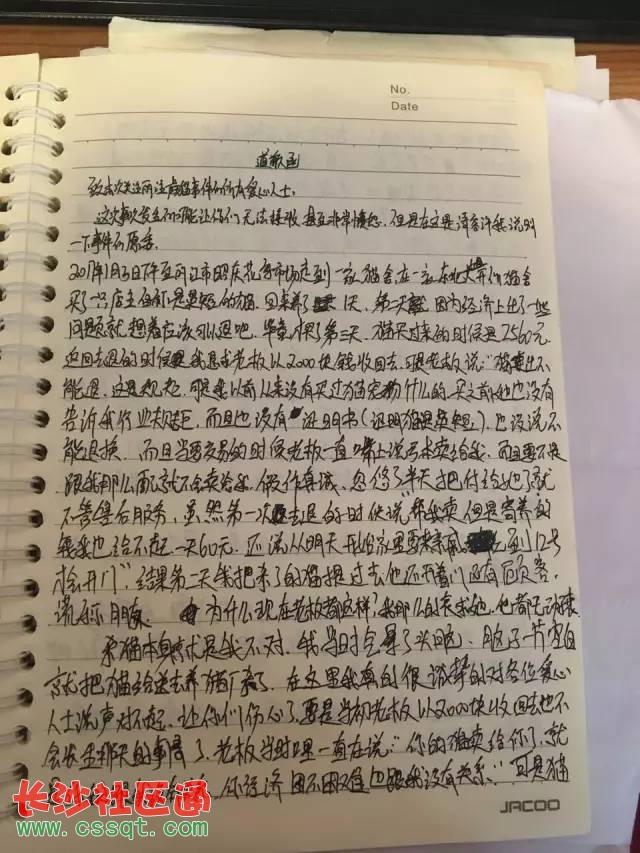 No.
Date
道歉函
致本次关注所法虐猫事件的所有爱心人士:
这次事次发生的可能让你们无法接收,甚至非常愤怒,但是在这里请容许我说明
一下事件的原委,
2017年1月3日下午至丽江市昭庆花鸟市场走到一家猫舍,在一家东北
买了一只店主自称是英短的猫,回来养了1天,第二天 因为经济上出了一些
问题就想着应该可以退吧,毕竟才买了第二天。猫买过来的时候是2560元
返回去退的时候要 我恳求老板以2000块钱收回去,可是老板说:“猫卖出不
能退,这是规矩,可是我以前从来没有买过猫宠物什么的,买之前他也没有
告诉我行业规矩,而且也没有证明书(证明猫是英短),也没说不
能退换,而且当要交易的时候老板一直嘴上说亏本卖给我,而且要不是
跟我那么面就不会卖给我,假作真诚,忽悠了半天把付给她了就
不管售后服务,虽然第一次去退的时候说“帮我卖但是寄养的
钱我也给不起一天60元,还说从明天开始家里要来亲戚 到12号
才会开门”,结果第二天我把杀了的猫提过去他还开着门还有顾客,
为什么现在老板都这样?我那么的求求她,他都无动于衷
杀猫本身就是我不对,我当时会晕了头呢,脑子一片空白
就把猫给送去养猪厂杀了,在这里我真的很诚挚的对各位爱心
人士说声对不起,让你们伤心了,要是当初老板以2000块收回去也不
会发生那天的事局了,老板当时哩一直在说:“你的猫卖给你了,就
你经济困不困难也跟我没有关系。”可是猫
JACOO
长沙社区通
www.cssqt.com